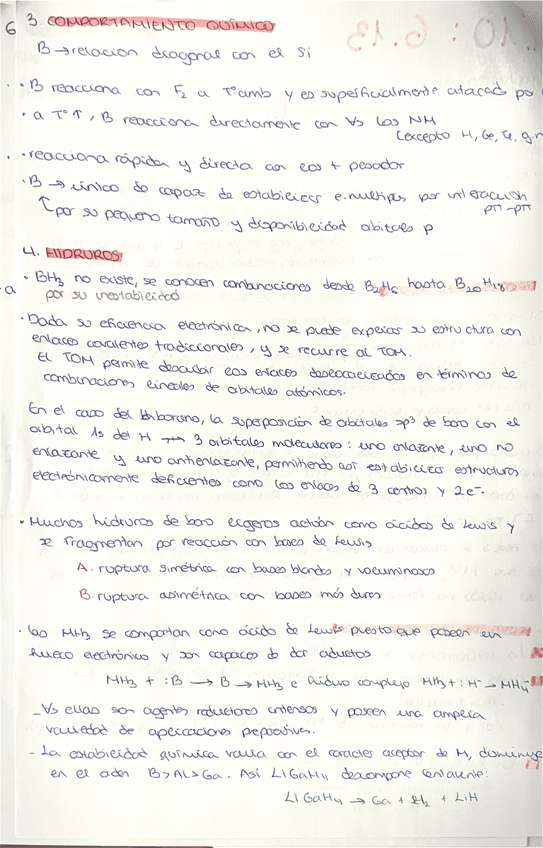 6 3. COMPORTAMIENTO QUÍMICO
B → relacion diagonal con el Si
· B reacciona con F₂ a Tªamb y es superficialmente atacad por
· a Tª↑, B reacciona directamente con ∀s los NM
(excepto H, Ge, Te, g.n
· reacciona rápida y directa con los + pesados
· B → único de capaz de estabilizar e.multiples por interacción
pπ-pπ
↑ por su pequeño tamaño y disponibilidad obitales p
4. HIDRUROS
· BH₃ no existe, se conocen combinaciones desde B₂H₆ hasta B₂₀H₁₆
por su inestabilidad
· Dada su eficiencia electrónica, no se puede explicar su estructura con
enlaces covalentes tradiccionales, y se recurre al TOM.
El TOM permite descubir los enlaces deslocalizados en términos de
combinaciones lineales de orbitales atómicos.
En el caso del diborano, la superposición de orbitales sp³ de boro con el
orbital 1s del H → 3 orbitales moleculares: uno enlazante, uno no
enlazante y uno antienlazante, permitiendo así estabilizar estructuras
electrónicamente deficientes como los enlaces de 3 centros y 2e⁻.
· Muchos hidruros de boro ligeros actúan como ácidos de Lewis y
se fragmentan por reacción con bases de Lewis
A. ruptura simétrica con bases blandas y voluminosas
B. ruptura asimétrica con bases más duras
· Los MH₃ se comportan como ácido de Lewis puesto que poseen un
hueco electrónico y son capaces de dar aductos
MH₃ + :B → B→MH₃ e hidruro complejo MH₃+:H⁻→MH₄⁻
- ∀s ellos son agentes reductores intensos y poseen una amplia
variedad de aplicaciones preparativas.
- La estabilidad química varia con el caracter aceptor de M, disminuye
en el orden B>Al>Ga. Así LiGaH₄ descompone lentamente:
LiGaH₄ → Ga + H₂ + LiH